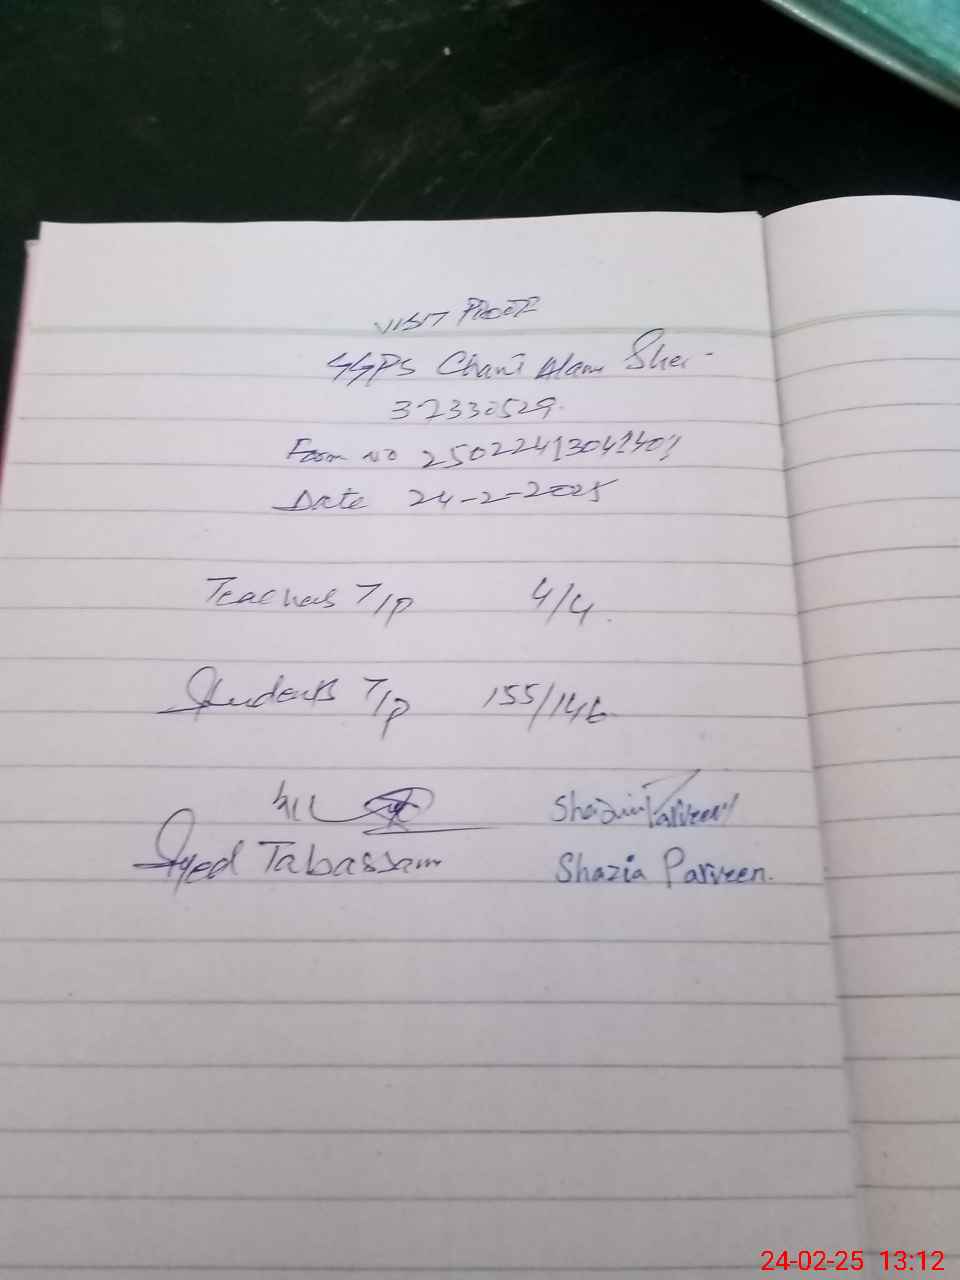 VISIT PROOF
GGPS Chani Alam Sher
37330529.
Form no
Date 24-2-2025
Teachers T/P 4/4.
Students T/P 155/146
Shazia Parveen
Syed Tabassam
Shazia Parveen.
24-02-25 13:12